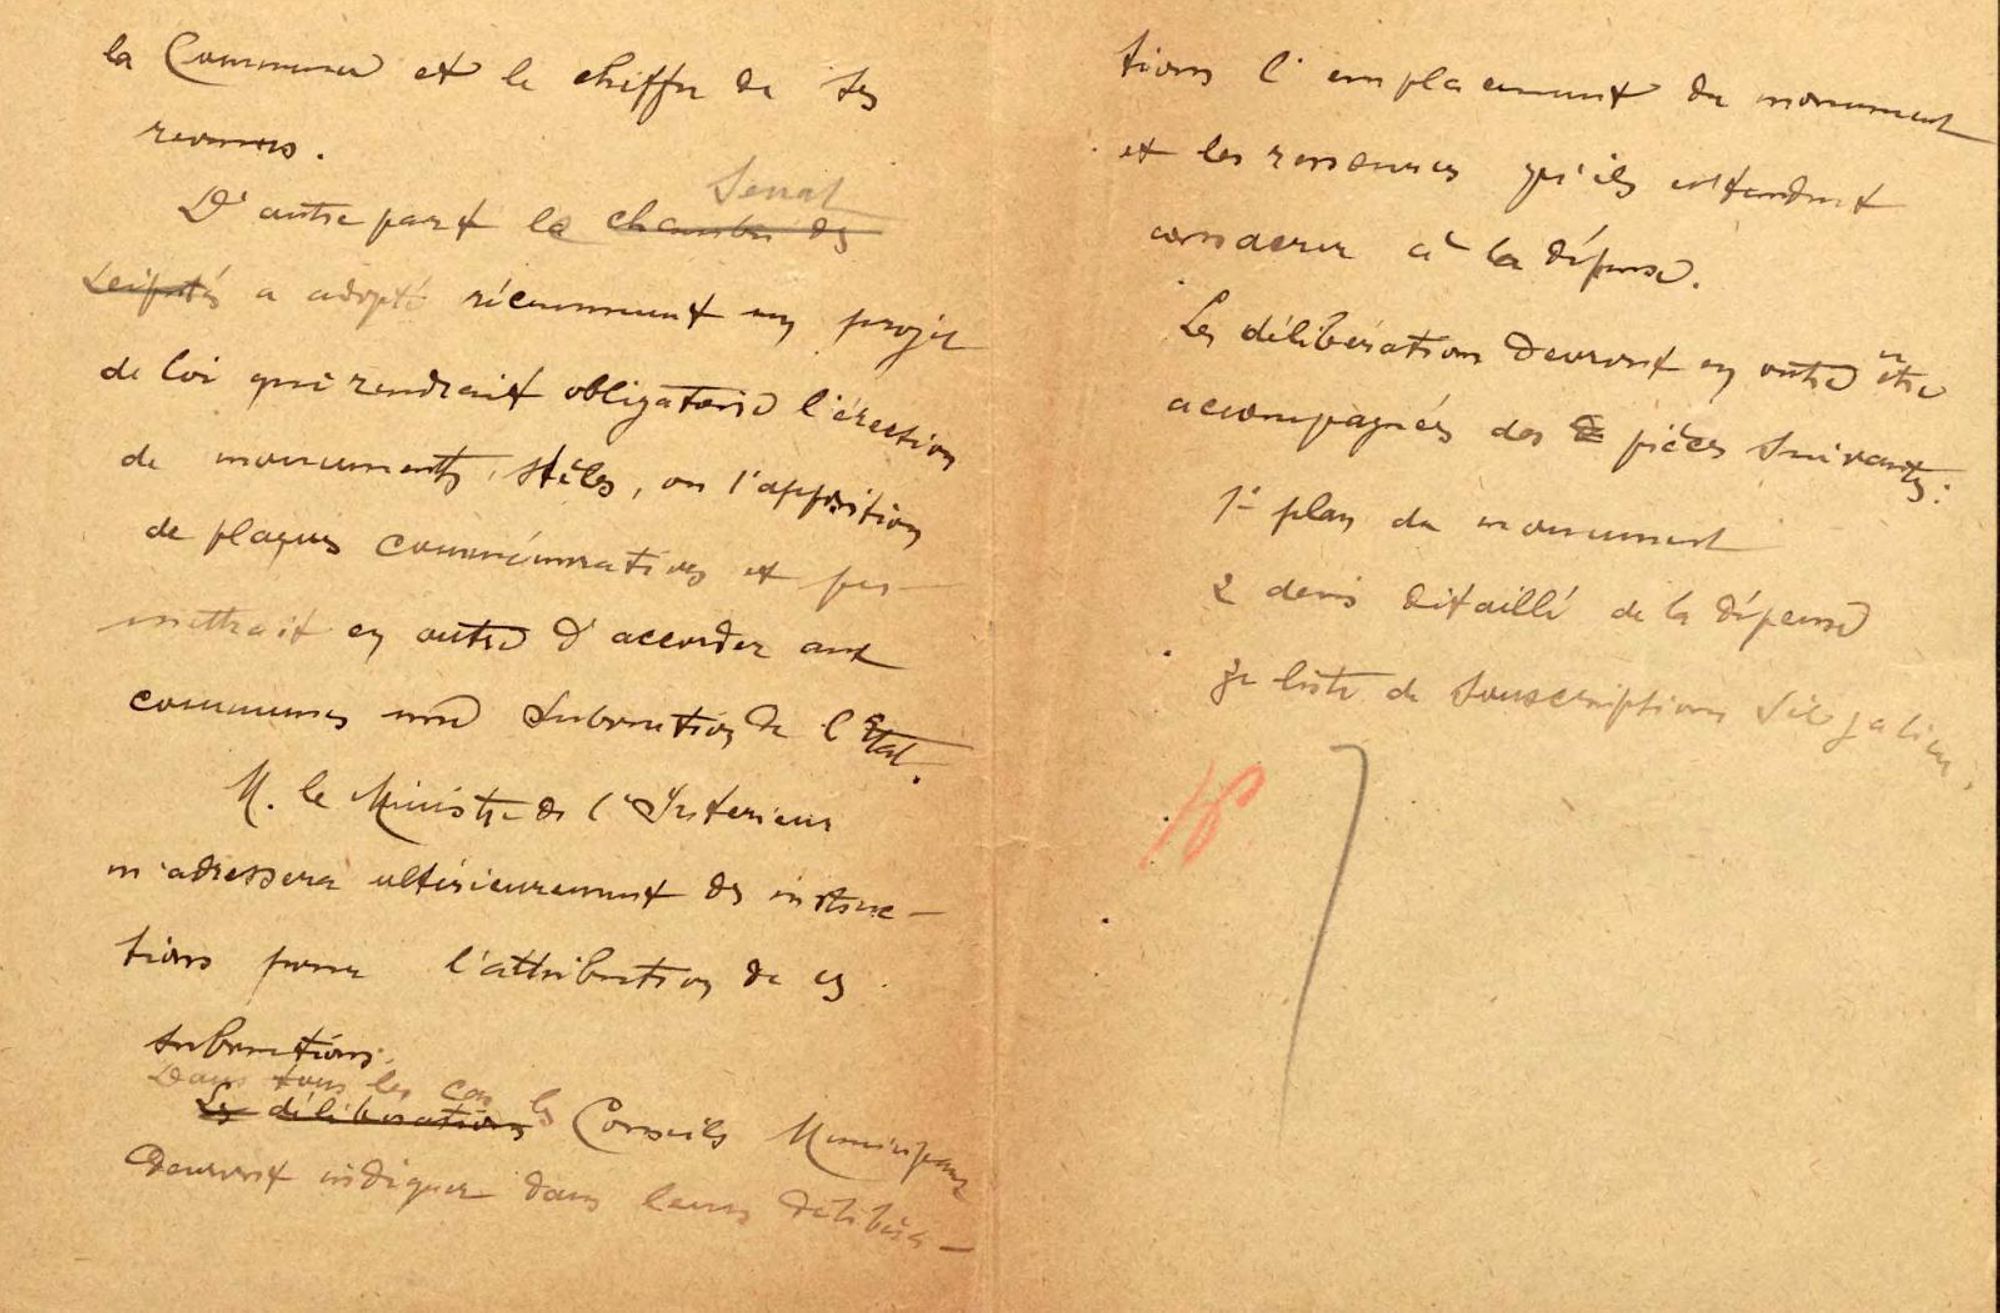 la Commune et le chiffre de ses
revenus.
Senat
D'autre part le chambre des
Députés a adopté récemment un projet
de loi qui rendrait obligatoire l'érection
de monuments, stèles, ou l'apposition
de plaques commémoratives et per-
mettrait en outre d'accorder aux
communes une subvention de l'Etat.
M. le Ministre de l'Interieur
m'adressera ultérieurement des instruc-
tions pour l'attribution de ces
subventions.
Dans tous les cas les Conseils Municipaux
Les délibérations
devront indiquer dans leurs délibéra-
tions l'emplacement du monument
et les ressources qu'ils entendent
consacrer à la dépense.
Les délibérations devront en outre être
accompagnées des pièces suivantes:
1° plan du monument
2 devis détaillé de la dépense
3e liste de souscriptions